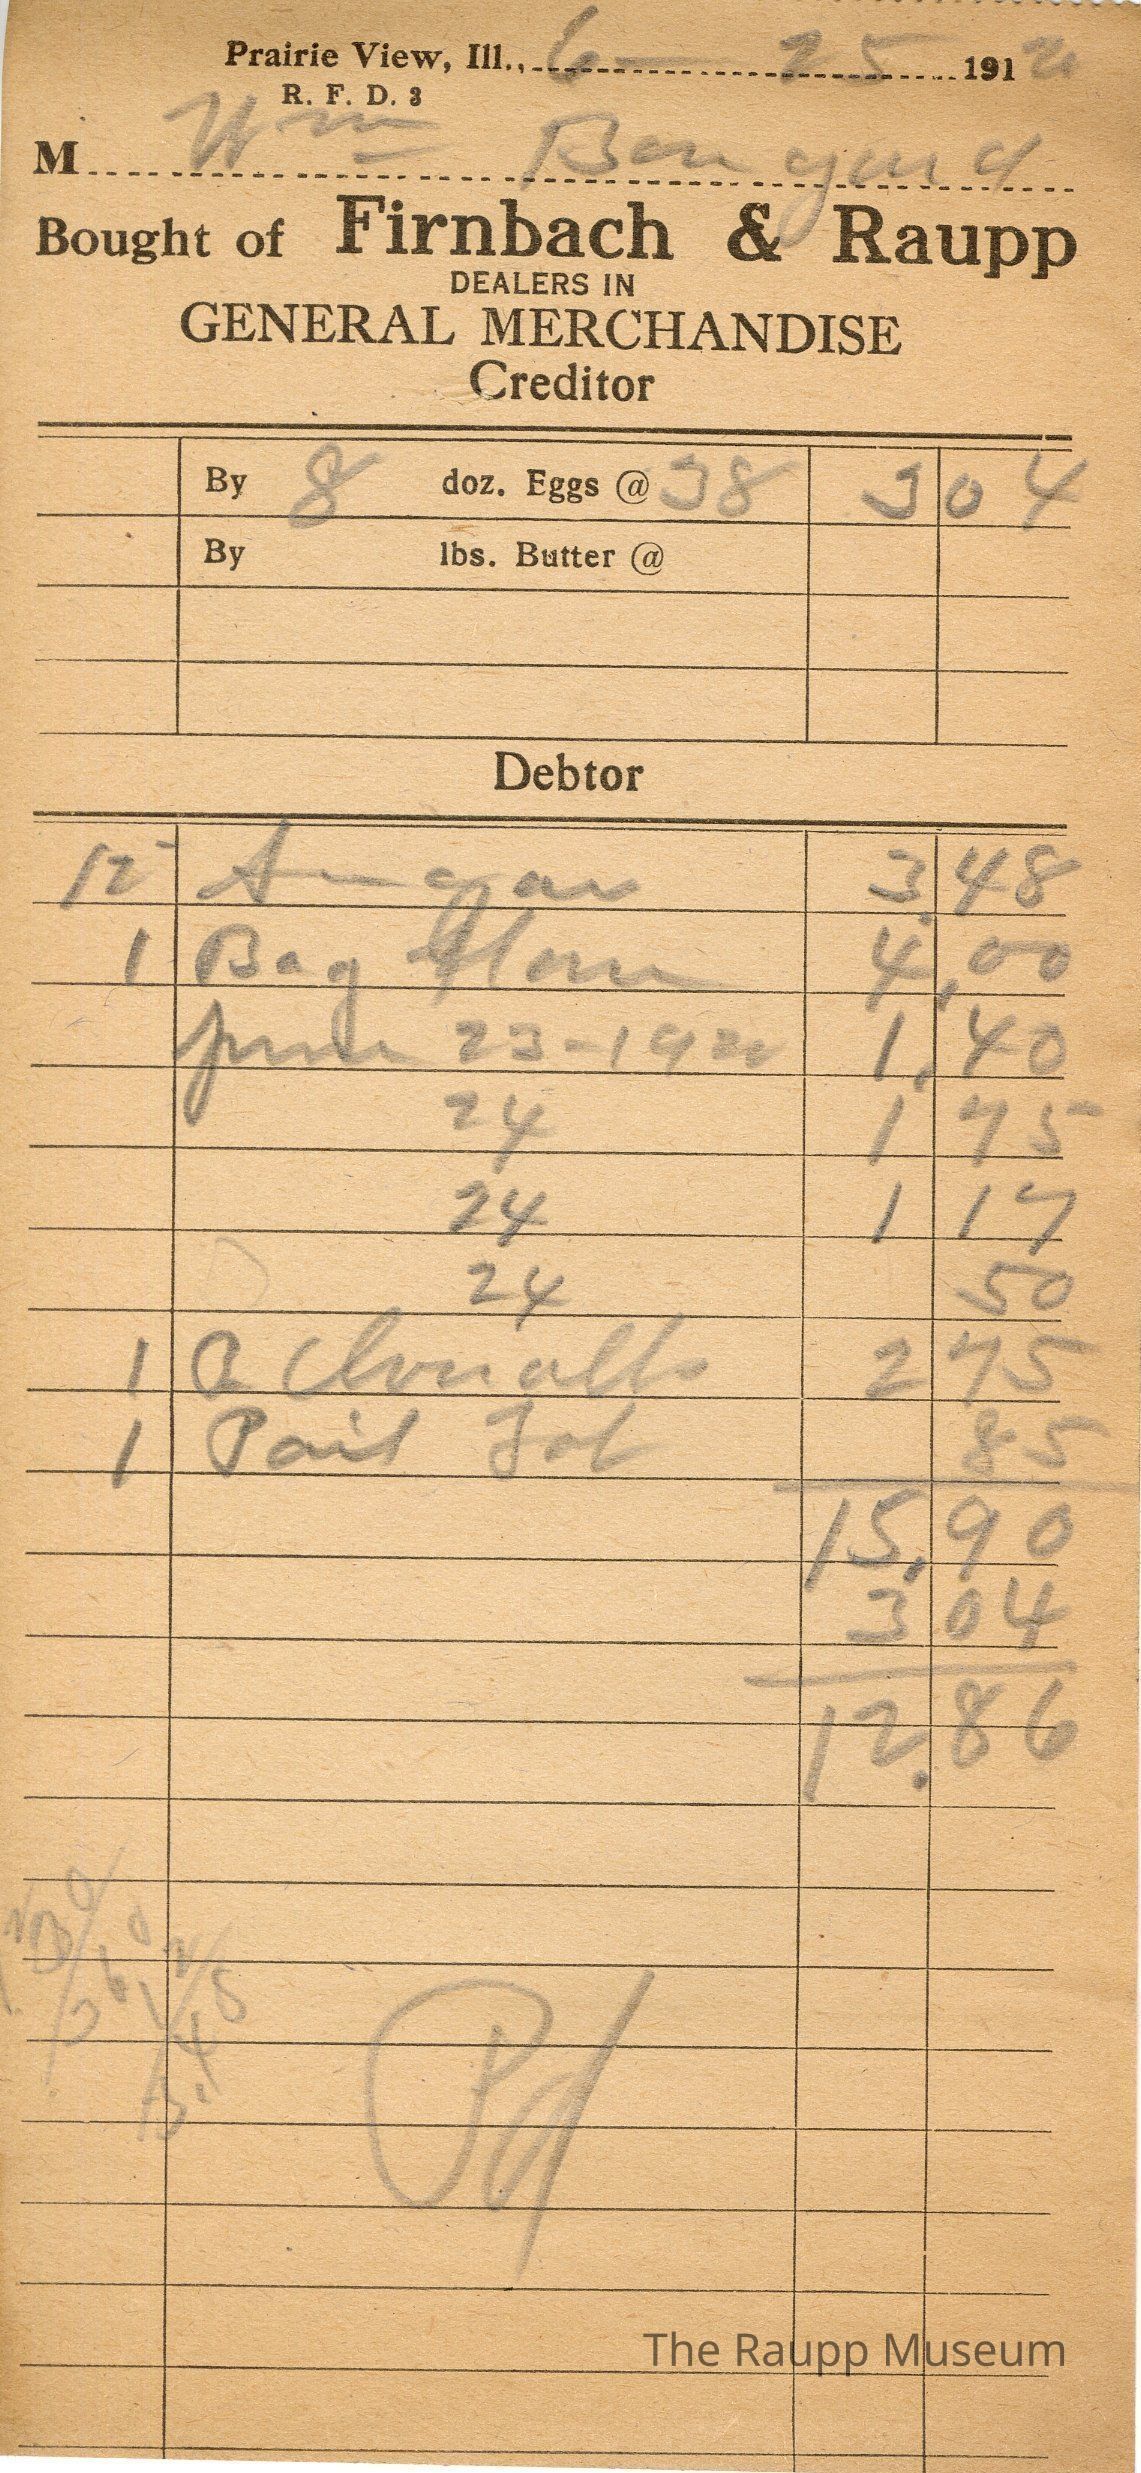 Prairie View, Ill., 6 - 25 191
R. F. D. 3
M Wm
Bought of Firnbach & Raupp
DEALERS IN
GENERAL MERCHANDISE
Creditor
By 8 doz. Eggs @ 38 3 04
By lbs. Butter @
Debtor
12 Sugar 3 48
1 Bag flour 4,00
June 23-1920 1,40
24 1 75
24 1 17
24 50
1 2 75
1 Pail 85
15.90
3 04
12.86
Pd
The Raupp Museum